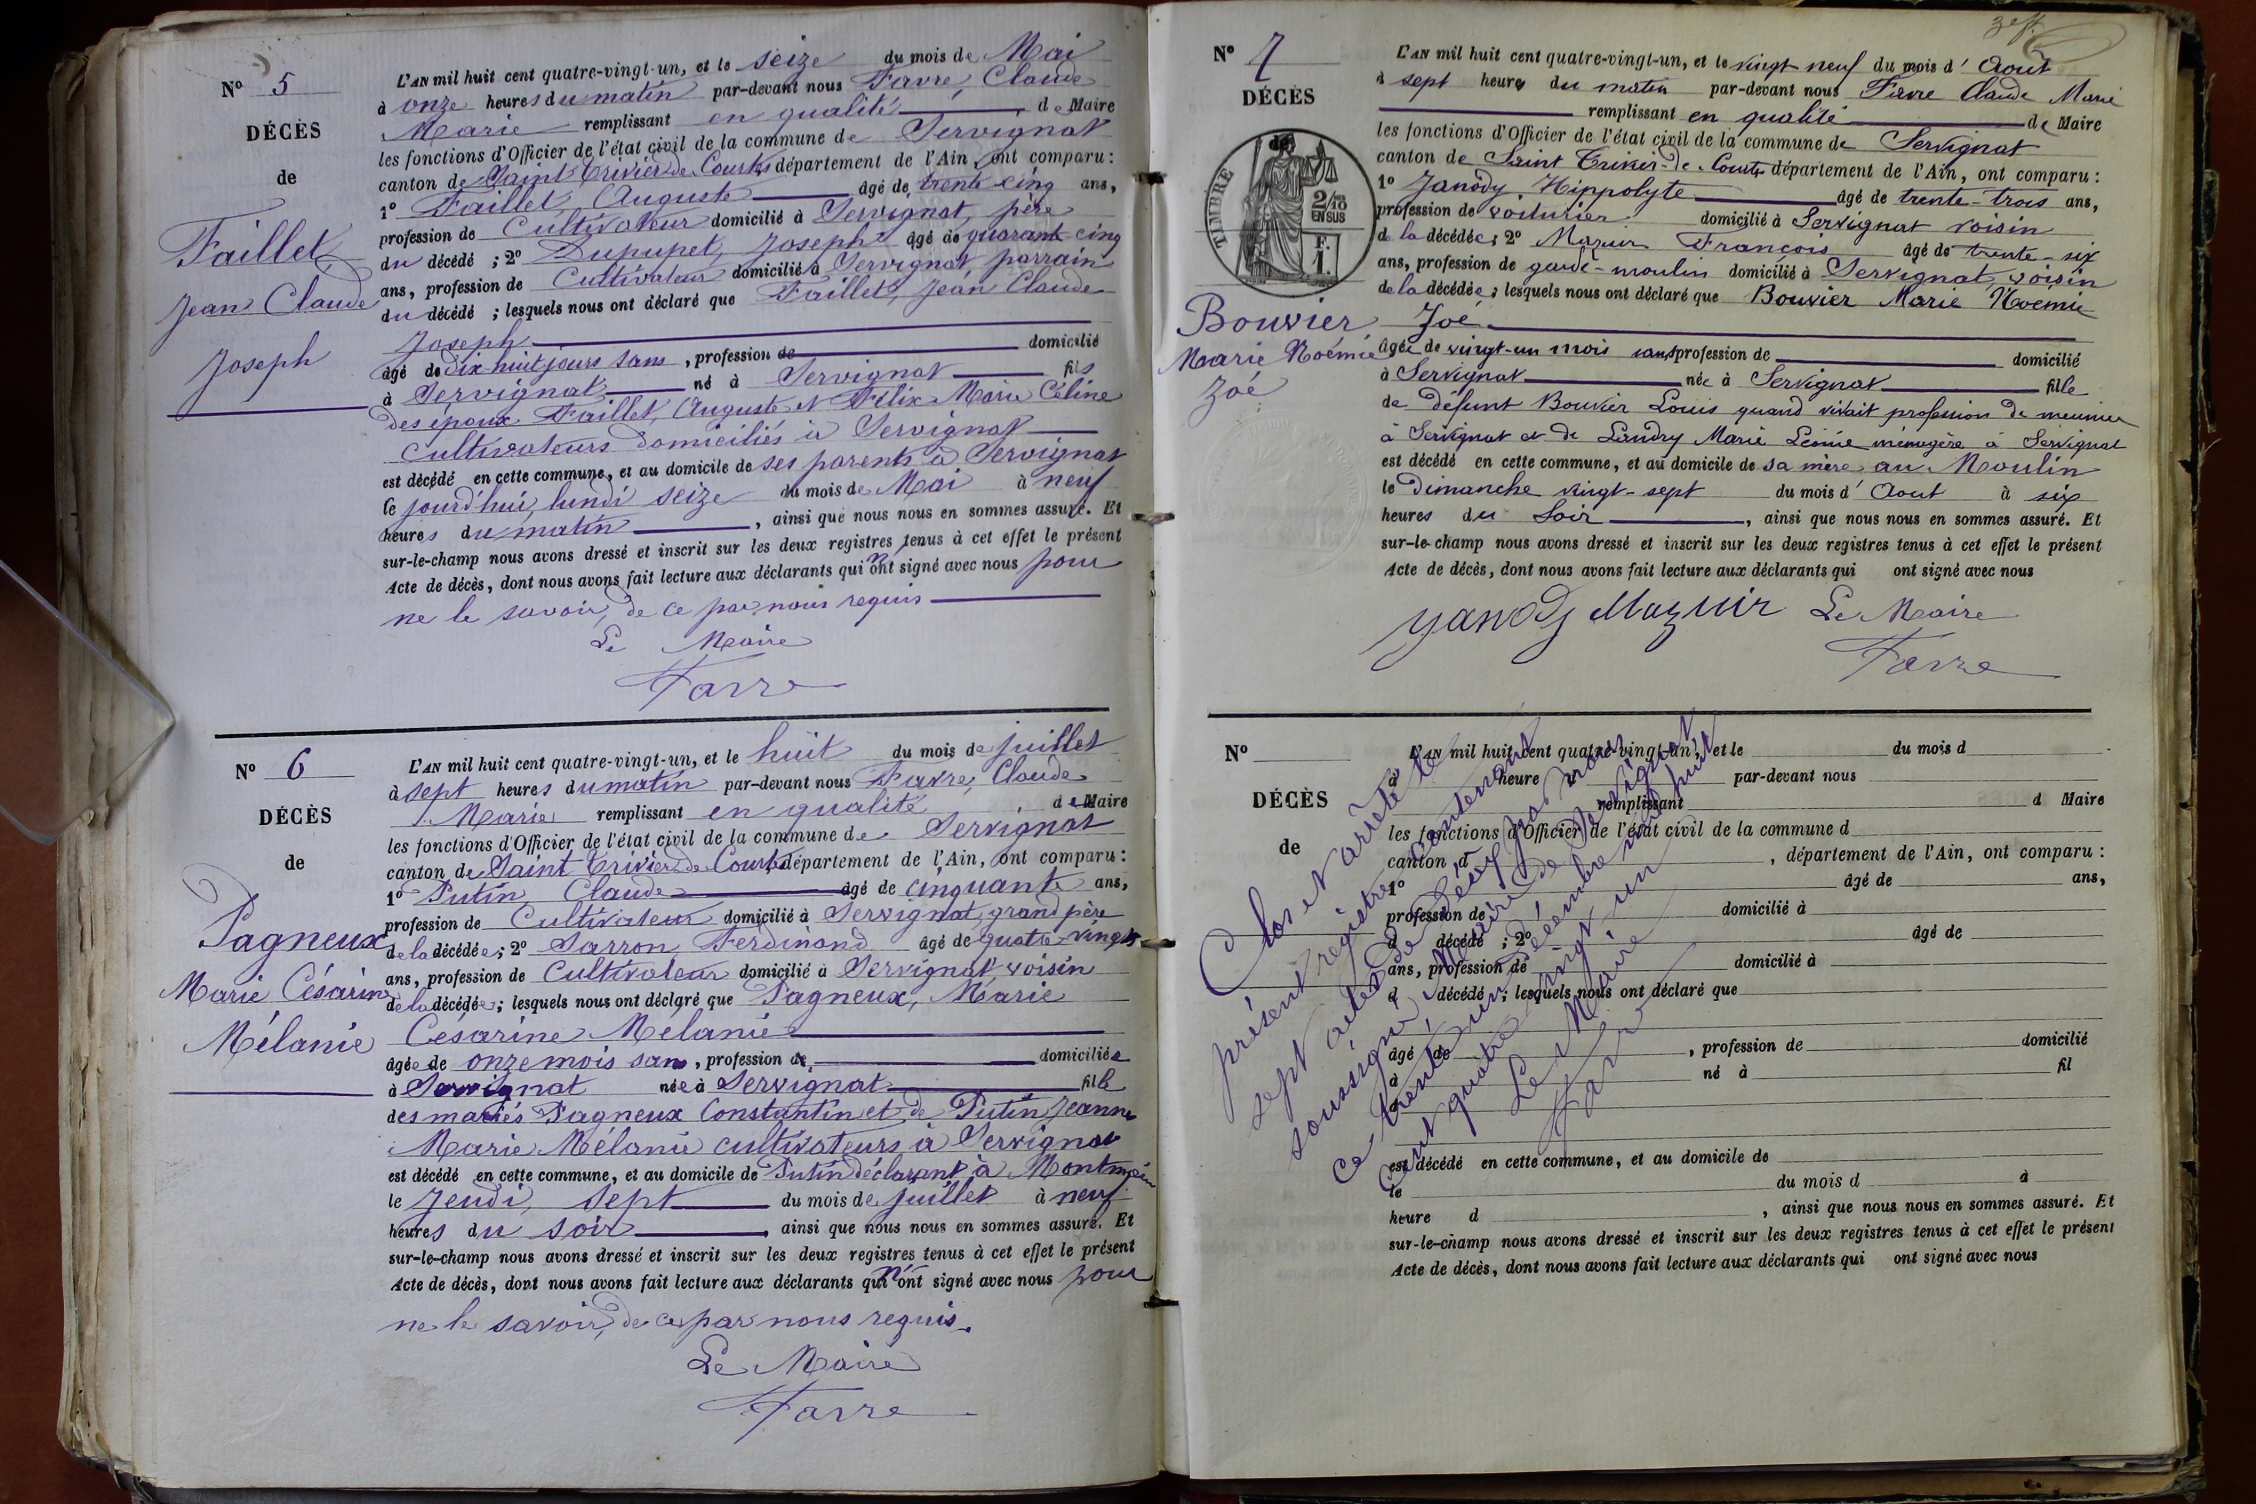 N° 5
DÉCÈS
de
Faillet
Jean Claude
Joseph
L'AN mil huit cent quatre-vingt-un, et le seize du mois de Mai
à onze heures du matin par-devant nous Favre, Claude
Marie remplissant en qualité de Maire
les fonctions d'Officier de l'état civil de la commune de Servignat
canton de Saint Trivier de Courtes département de l'Ain, ont comparu :
1° Faillet Auguste âgé de trente cinq ans,
profession de Cultivateur domicilié à Servignat, père
du décédé ; 2° Dupupet, Joseph âgé de quarante cinq
ans, profession de Cultivateur domicilié à Servignat parrain
du décédé ; lesquels nous ont déclaré que Faillet, Jean Claude
Joseph domicilié
âgé de dix huit jours sans, profession de
à Servignat né à Servignat fils
des époux Faillet, Auguste et Félix Marie Céline
Cultivateurs domiciliés à Servignat
est décédé en cette commune, et au domicile de ses parents à Servignat
le jourd'hui, lundi seize du mois de Mai à neuf
heures du matin, ainsi que nous nous en sommes assuré. Et
sur-le-champ nous avons dressé et inscrit sur les deux registres tenus à cet effet le présent
Acte de décès, dont nous avons fait lecture aux déclarants qui n'ont signé avec nous pour
ne le savoir, de ce par nous requis
Le Maire
Favre
N° 6
DÉCÈS
de
Pagneux
Marie Césarine
Mélanie
L'AN mil huit cent quatre-vingt-un, et le huit du mois de juillet
à sept heures du matin par-devant nous Favre, Claude
Marie remplissant en qualité de Maire
les fonctions d'Officier de l'état civil de la commune de Servignat
canton de Saint Trivier de Courtes département de l'Ain, ont comparu :
1° Putin, Claude âgé de cinquante ans,
profession de Cultivateur domicilié à Servignat, grand père
de la décédée ; 2° Sarron Ferdinand âgé de quatre-vingts
ans, profession de Cultivateur domicilié à Servignat, voisin
de la décédée ; lesquels nous ont déclaré que Pagneux, Marie
Césarine Mélanie
âgée de onze mois sans, profession de domiciliée
à Servignat née à Servignat fille
des mariés Pagneux Constantin et de Putin Jeanne
Marie Mélanie cultivateurs à Servignat
est décédé en cette commune, et au domicile de Putin déclarant à
le Jeudi, sept du mois de juillet à neuf
heures du soir, ainsi que nous nous en sommes assuré. Et
sur-le-champ nous avons dressé et inscrit sur les deux registres tenus à cet effet le présent
Acte de décès, dont nous avons fait lecture aux déclarants qui n'ont signé avec nous pour
ne le savoir, de ce par nous requis.
Le Maire
Favre
N° 7
DÉCÈS
de
TIMBRE
2/10
EN SUS
F.
1.
Bouvier
Marie Noémie
Zoé
L'AN mil huit cent quatre-vingt-un, et le vingt neuf du mois d'Aout
à sept heures du matin par-devant nous Favre Claude Marie
remplissant en qualité de Maire
les fonctions d'Officier de l'état civil de la commune de Servignat
canton de Saint Trivier-de-Courtes département de l'Ain, ont comparu :
1° Janody Hippolyte âgé de trente-trois ans,
profession de voiturier domicilié à Servignat voisin
de la décédée ; 2° Mazuir François âgé de trente-six
ans, profession de garde-moulin domicilié à Servignat, voisin
de la décédée ; lesquels nous ont déclaré que Bouvier Marie Noemie
Zoé
âgée de vingt-un mois sans profession de domicilié
à Servignat née à Servignat fille
de défunt Bouvier Louis quand vivait profession de meunier
à Servignat et de Landry Marie ménagère à Servignat
est décédé en cette commune, et au domicile de sa mère au Moulin
le Dimanche vingt-sept du mois d'Aout à six
heures du Soir, ainsi que nous nous en sommes assuré. Et
sur-le-champ nous avons dressé et inscrit sur les deux registres tenus à cet effet le présent
Acte de décès, dont nous avons fait lecture aux déclarants qui ont signé avec nous
yanody Mazuir Le Maire
Favre
N°
DÉCÈS
de
L'AN mil huit cent quatre-vingt-un, et le du mois d
à heure d par-devant nous
remplissant d Maire
les fonctions d'Officier de l'état civil de la commune d
canton d, département de l'Ain, ont comparu :
1° âgé de ans,
profession de domicilié à
d décédé ; 2° âgé de
ans, profession de domicilié à
d décédé ; lesquels nous ont déclaré que
âgé de, profession de domicilié
à né à fil
est décédé en cette commune, et au domicile de
le du mois d à
heure d, ainsi que nous nous en sommes assuré. Et
sur-le-champ nous avons dressé et inscrit sur les deux registres tenus à cet effet le présent
Acte de décès, dont nous avons fait lecture aux déclarants qui ont signé avec nous
Clos et arrêté le
présent registre contenant
sept actes de décès par nous
soussigné, Maire de Servignat
ce trente un Décembre mil huit
cent quatre vingt un
Le Maire
Favre